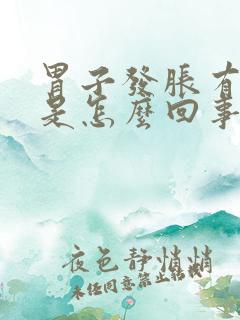 胃子發脹有
是怎麼回事
夜色靜悄悄
未任同意禁止轉載